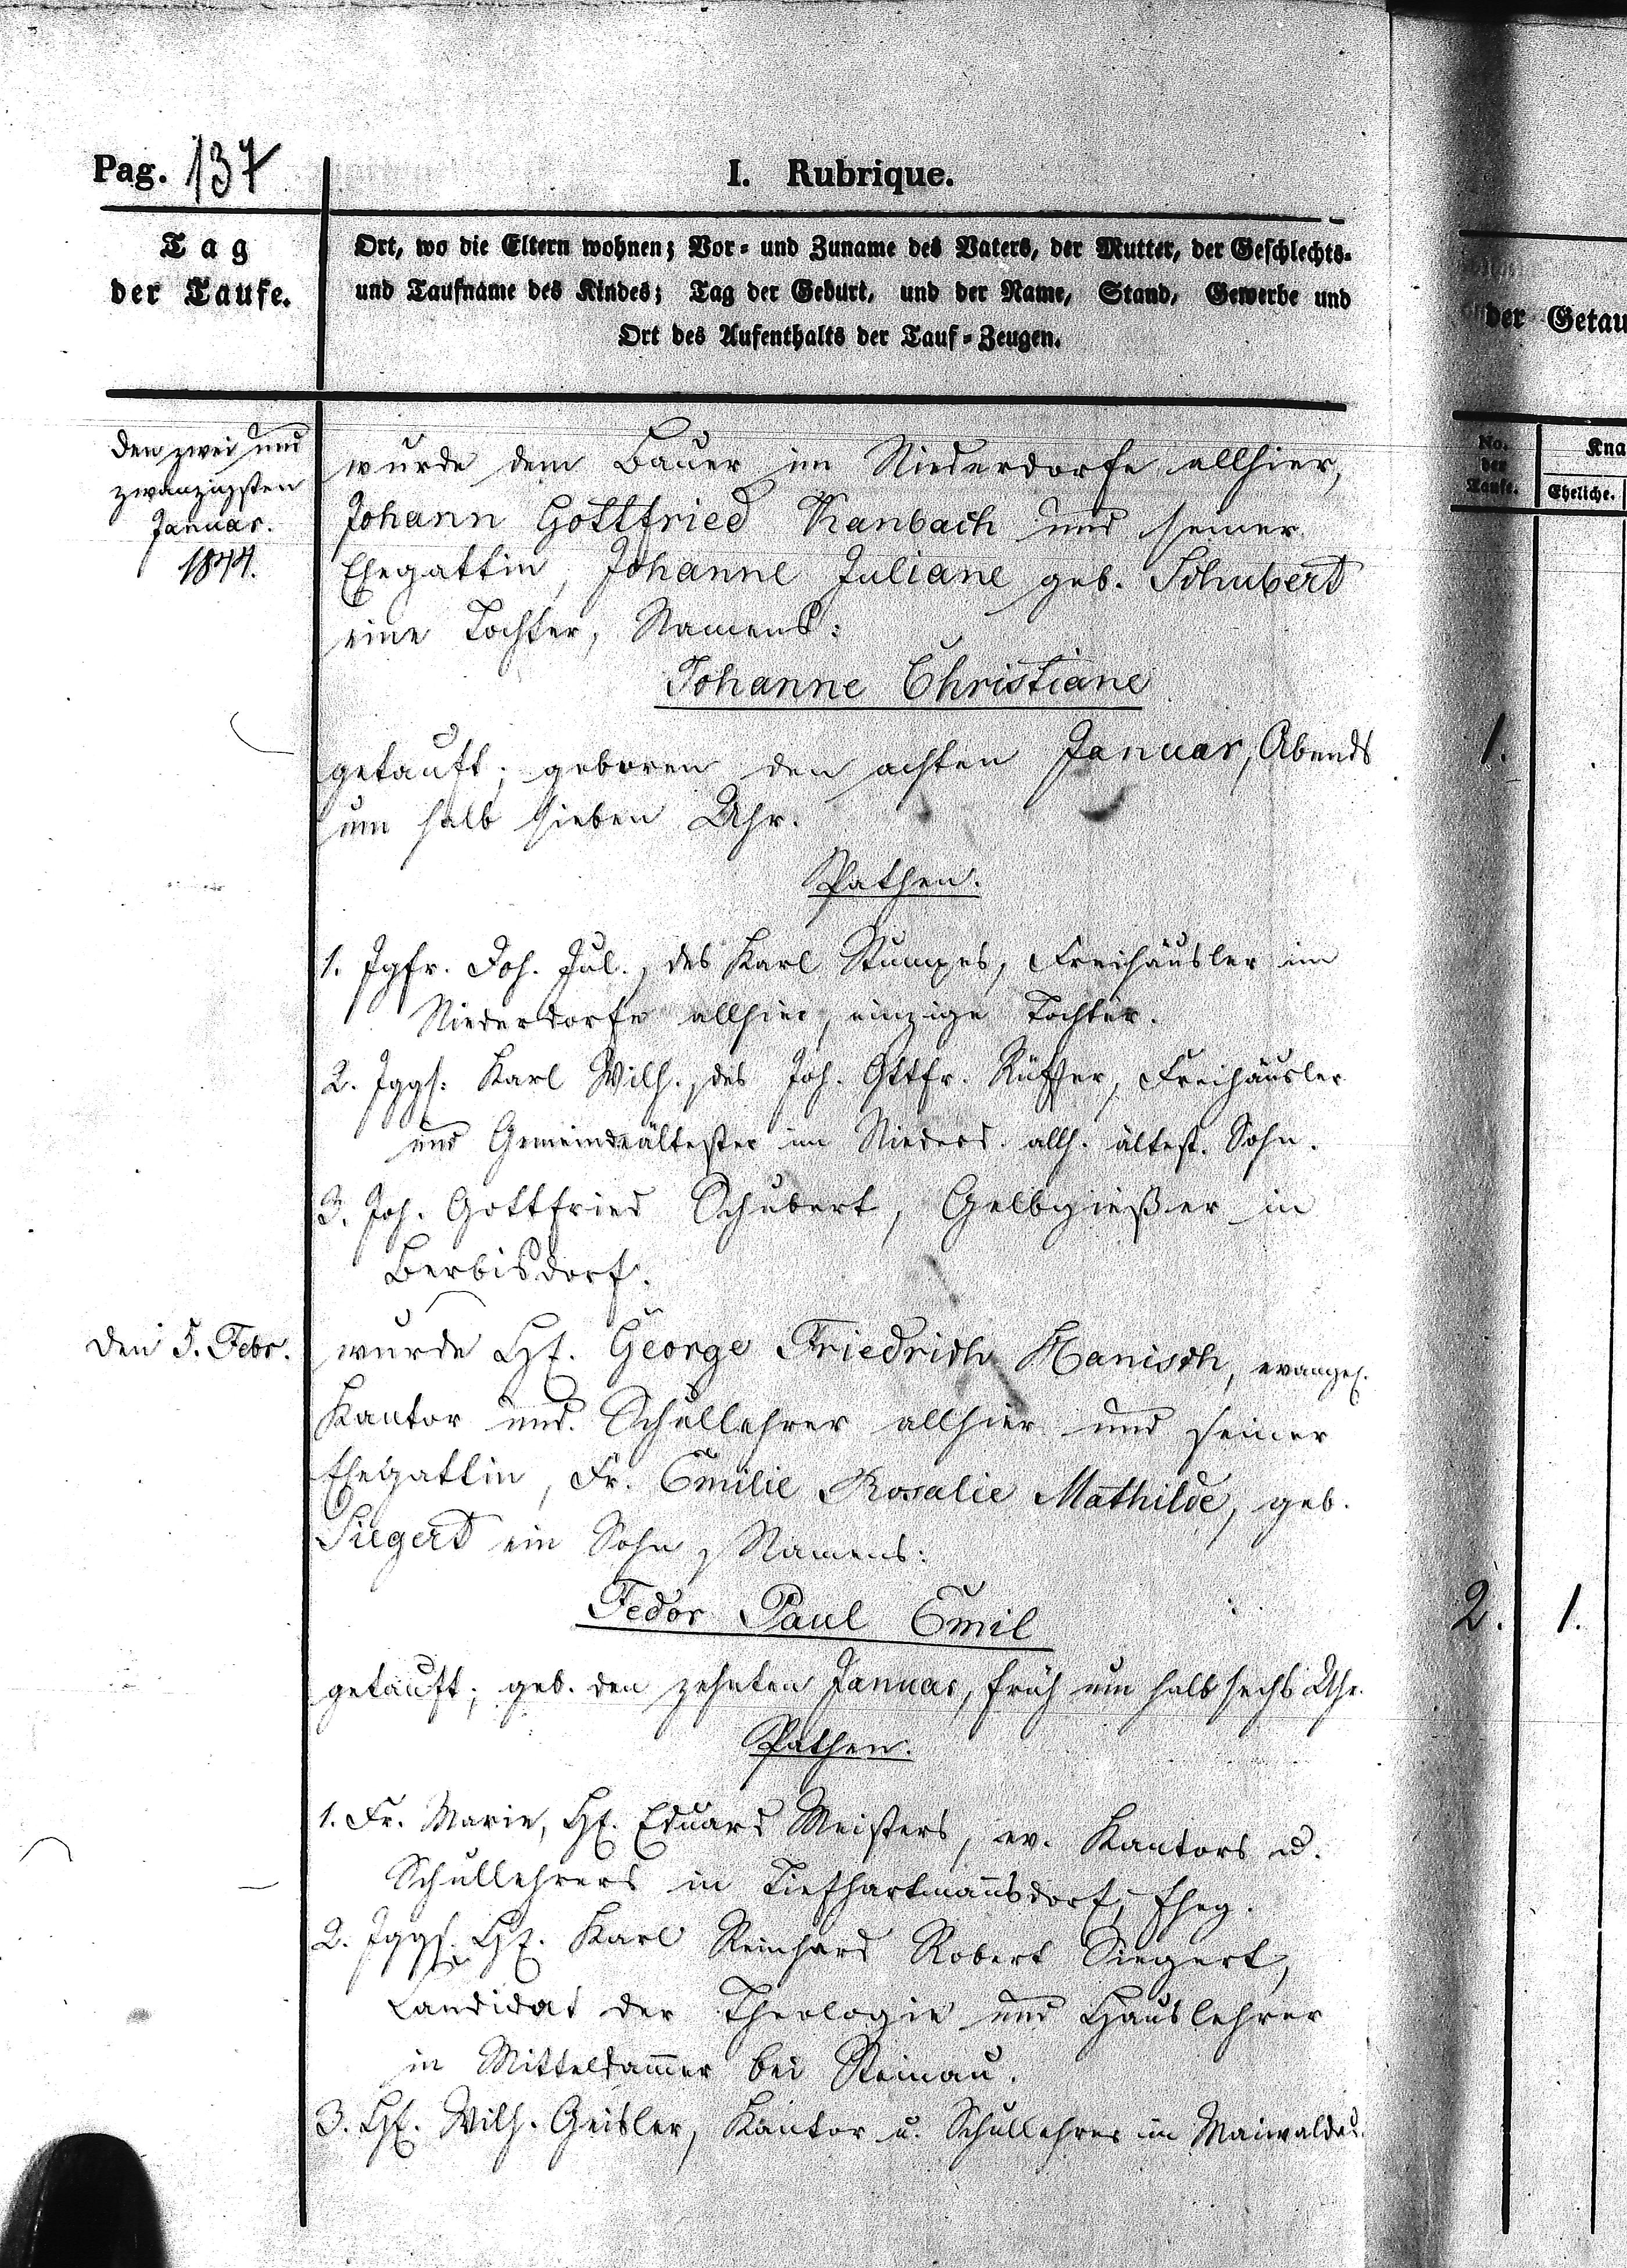 Pag. 137
I. Rubrique.
Tag
der Taufe.
Ort, wo die Eltern wohnen; Vor- und Zuname des Vaters, der Mutter, der Geschlechts-
und Taufname des Kindes; Tag der Geburt, und der Name, Stand, Gewerbe und
Ort des Aufenthalts der Tauf-Zeugen.
den zwei und
zwanzigsten
Januar.
1844.
wurde dem Bauer im Niederdorfe allhier,
Johann Gottfried Kanbach und seiner
Ehegattin, Johanne Juliane geb. Schubert
eine Tochter, Namens:
Johanne Christiane
getauft; geboren den achten Januar, Abends
um halb sieben Uhr.
Pathen.
1. Jgfr. Joh. Jul., des Karl Stumpes, Freihäusler im
Niederdorfe allhier, einzige Tochter.
2. Jggs. Karl Wilh., des Joh. Gttfr. Rüffer, Freihäusler
und Gemeindeältester im Niederd. allh. ältest. Sohn.
3. Joh. Gottfried Schubert, Gelbgießer in
Berbisdorf.
den 5. Febr.
wurde Hr. George Friedrich Hanisch, evangel.
Kantor und Schullehrer allhier und seiner
Ehegattin, Fr. Emilie Rosalie Mathilde, geb.
Siegert ein Sohn, Namens:
Fedor Paul Emil
getauft; geb. den zehnten Januar, früh um halb sechs Uhr.
Pathen.
1. Fr. Marie, Hr. Eduard Meisters, ev. Kantors u.
Schullehrers in Tiefhartmannsdorf, Eheg.
2. Jggs. Hr. Karl Reinhard Robert Siegert,
Candidat der Theologie und Hauslehrer
in Mitteldammer bei Steinau.
3. Hr. Wilh. Geisler, Kantor u. Schullehrer in Maiwaldau.
der Getau
No.
der
Taufe.
Kna
Eheliche.
1.
2. 1.